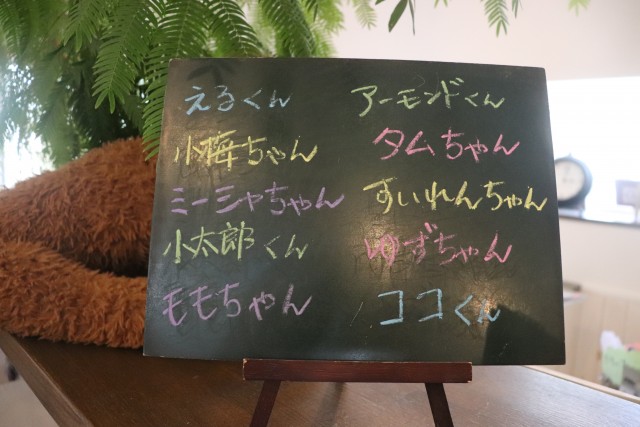 えるくん
小梅ちゃん
ミーシャちゃん
小太郎くん
ももちゃん
アーモンドくん
タムちゃん
すいれんちゃん
ゆずちゃん
ココくん